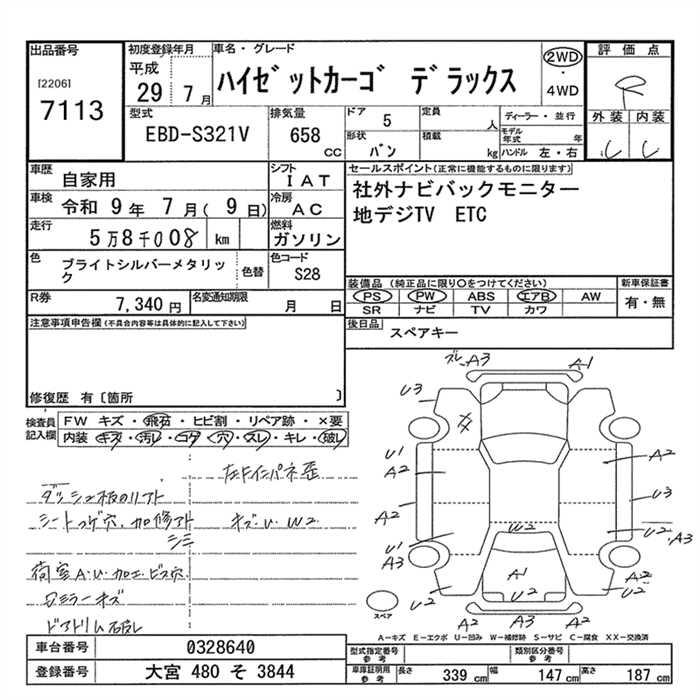 出品番号
[2206]
7113
初度登録年月
平成
29 7 月
車名・グレード
ハイゼットカーゴ デラックス
2WD
・
4WD
評価点
R
外装 内装
型式
EBD-S321V
排気量
658
CC
ドア 5
定員 人
ディーラー・並行
モデル年式 年
形状 バン
積載 kg
ハンドル 左・右
車歴 自家用
シフト IAT
車検 令和 9年 7月( 9日)
冷房 AC
走行 5万8千008 km
燃料 ガソリン
色 ブライトシルバーメタリック
色替
色コード S28
セールスポイント(正常に機能するものに限ります)
社外ナビバックモニター
地デジTV ETC
R券 7,340 円
名変通知期限 月 日
装備品 (純正品に限り○をつけてください)
PS PW ABS エアB AW
SR ナビ TV カワ
新車保証書
有・無
後日品 スペアキー
注意事項申告欄(不具合内容等は具体的に記入して下さい)
修復歴 有〔箇所 〕
検査員記入欄
FW キズ・飛石・ヒビ割・リペア跡・×要
内装 キズ・汚レ・コゲ・穴・スレ・キレ・破レ
ダッシュ板のリフト
キズ・U・W2
荷室A・U・加工・ビス穴
Rミラーキズ
ドアトリム破レ
A3
A1
U3
U1
A2
A2
A2
U3
U1
A2
W2
U2
A3
A1
U2
U2
A2
U2
A2
A3
A2
スペア
A-キズ E-エクボ U-凹み W-補修跡 S-サビ C-腐食 XX-交換済
車台番号 0328640
登録番号 大宮 480 そ 3844
型式指定番号 参考
類別区分番号 参考
車庫証明用 参考
長さ 339 cm 幅 147 cm 高さ 187 cm